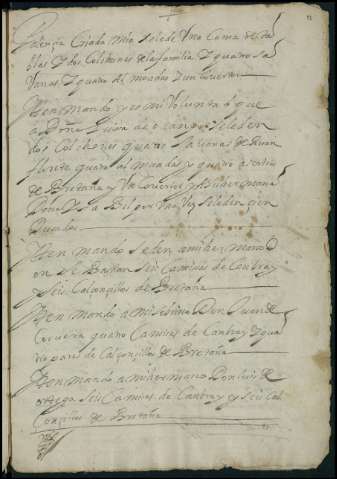 Criada mia se le de una Cama de ta
blas y dos Colchones de la familia y quatro sa
vanas y quatro almoadas y un Covertor
Yten mando y es mi Voluntad que
a Doña Luisa de se le den
dos Colchones quatro savanas de Ruan
florete quatro almoadas y quatro
de Bretaña y un Covertor y a su hermana
Doña se le den cien
Ducados
Yten mando se den a mi hermano D
on Bazan seis Camisas de Cambray
y seis Calzonzillos de Bretaña
Yten mando a mi sobrino Don Juan de
quatro Camisas de Cambray y qua
tro pares de Calzonzillos de Bretaña
Yten mando a mi hermano Don Luis de
ortega seis Camisas de Cambray y seis Cal
zonzillos de Bretaña